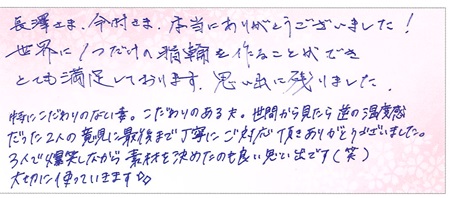 長澤さま、今村さま、本当にありがとうございました！
世界に1つだけの指輪を作ることができ
とても満足しております。思い出に残りました。
特にこだわりのない妻。こだわりのある夫。世間から見たら逆の温度感
だった2人の意見に最後まで丁寧にご対応頂きありがとうございました。
3人で爆笑しながら素材を決めたのも良い思い出です(笑)
大切に使っていきます